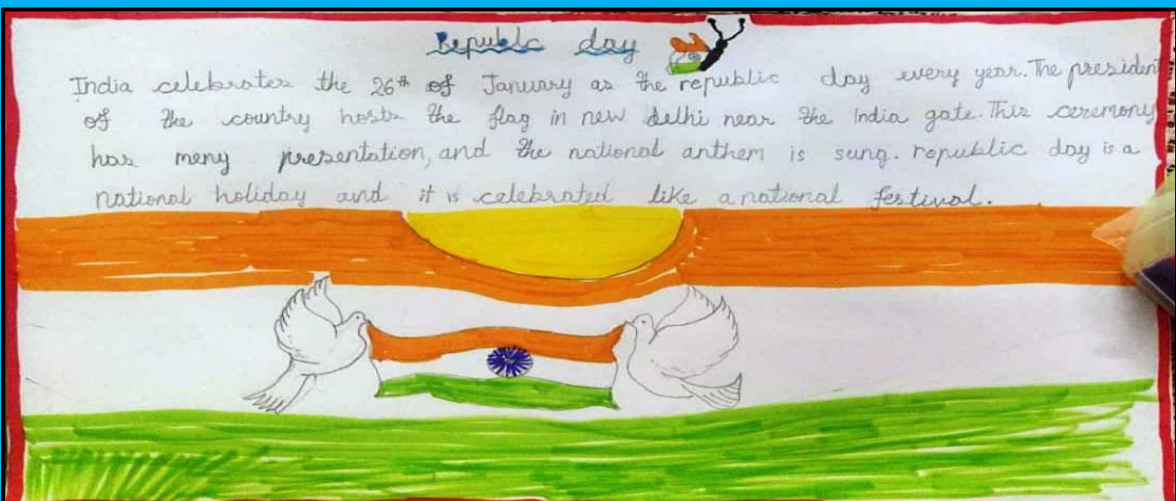 Republc day
India celebrates the 26th of January as the republic day every year. The president
of the country hosts the flag in new delhi near the India gate. This ceremony
has meny presentation, and the national anthem is sung. republic day is a
national holiday and it is celebrated like a national festival.